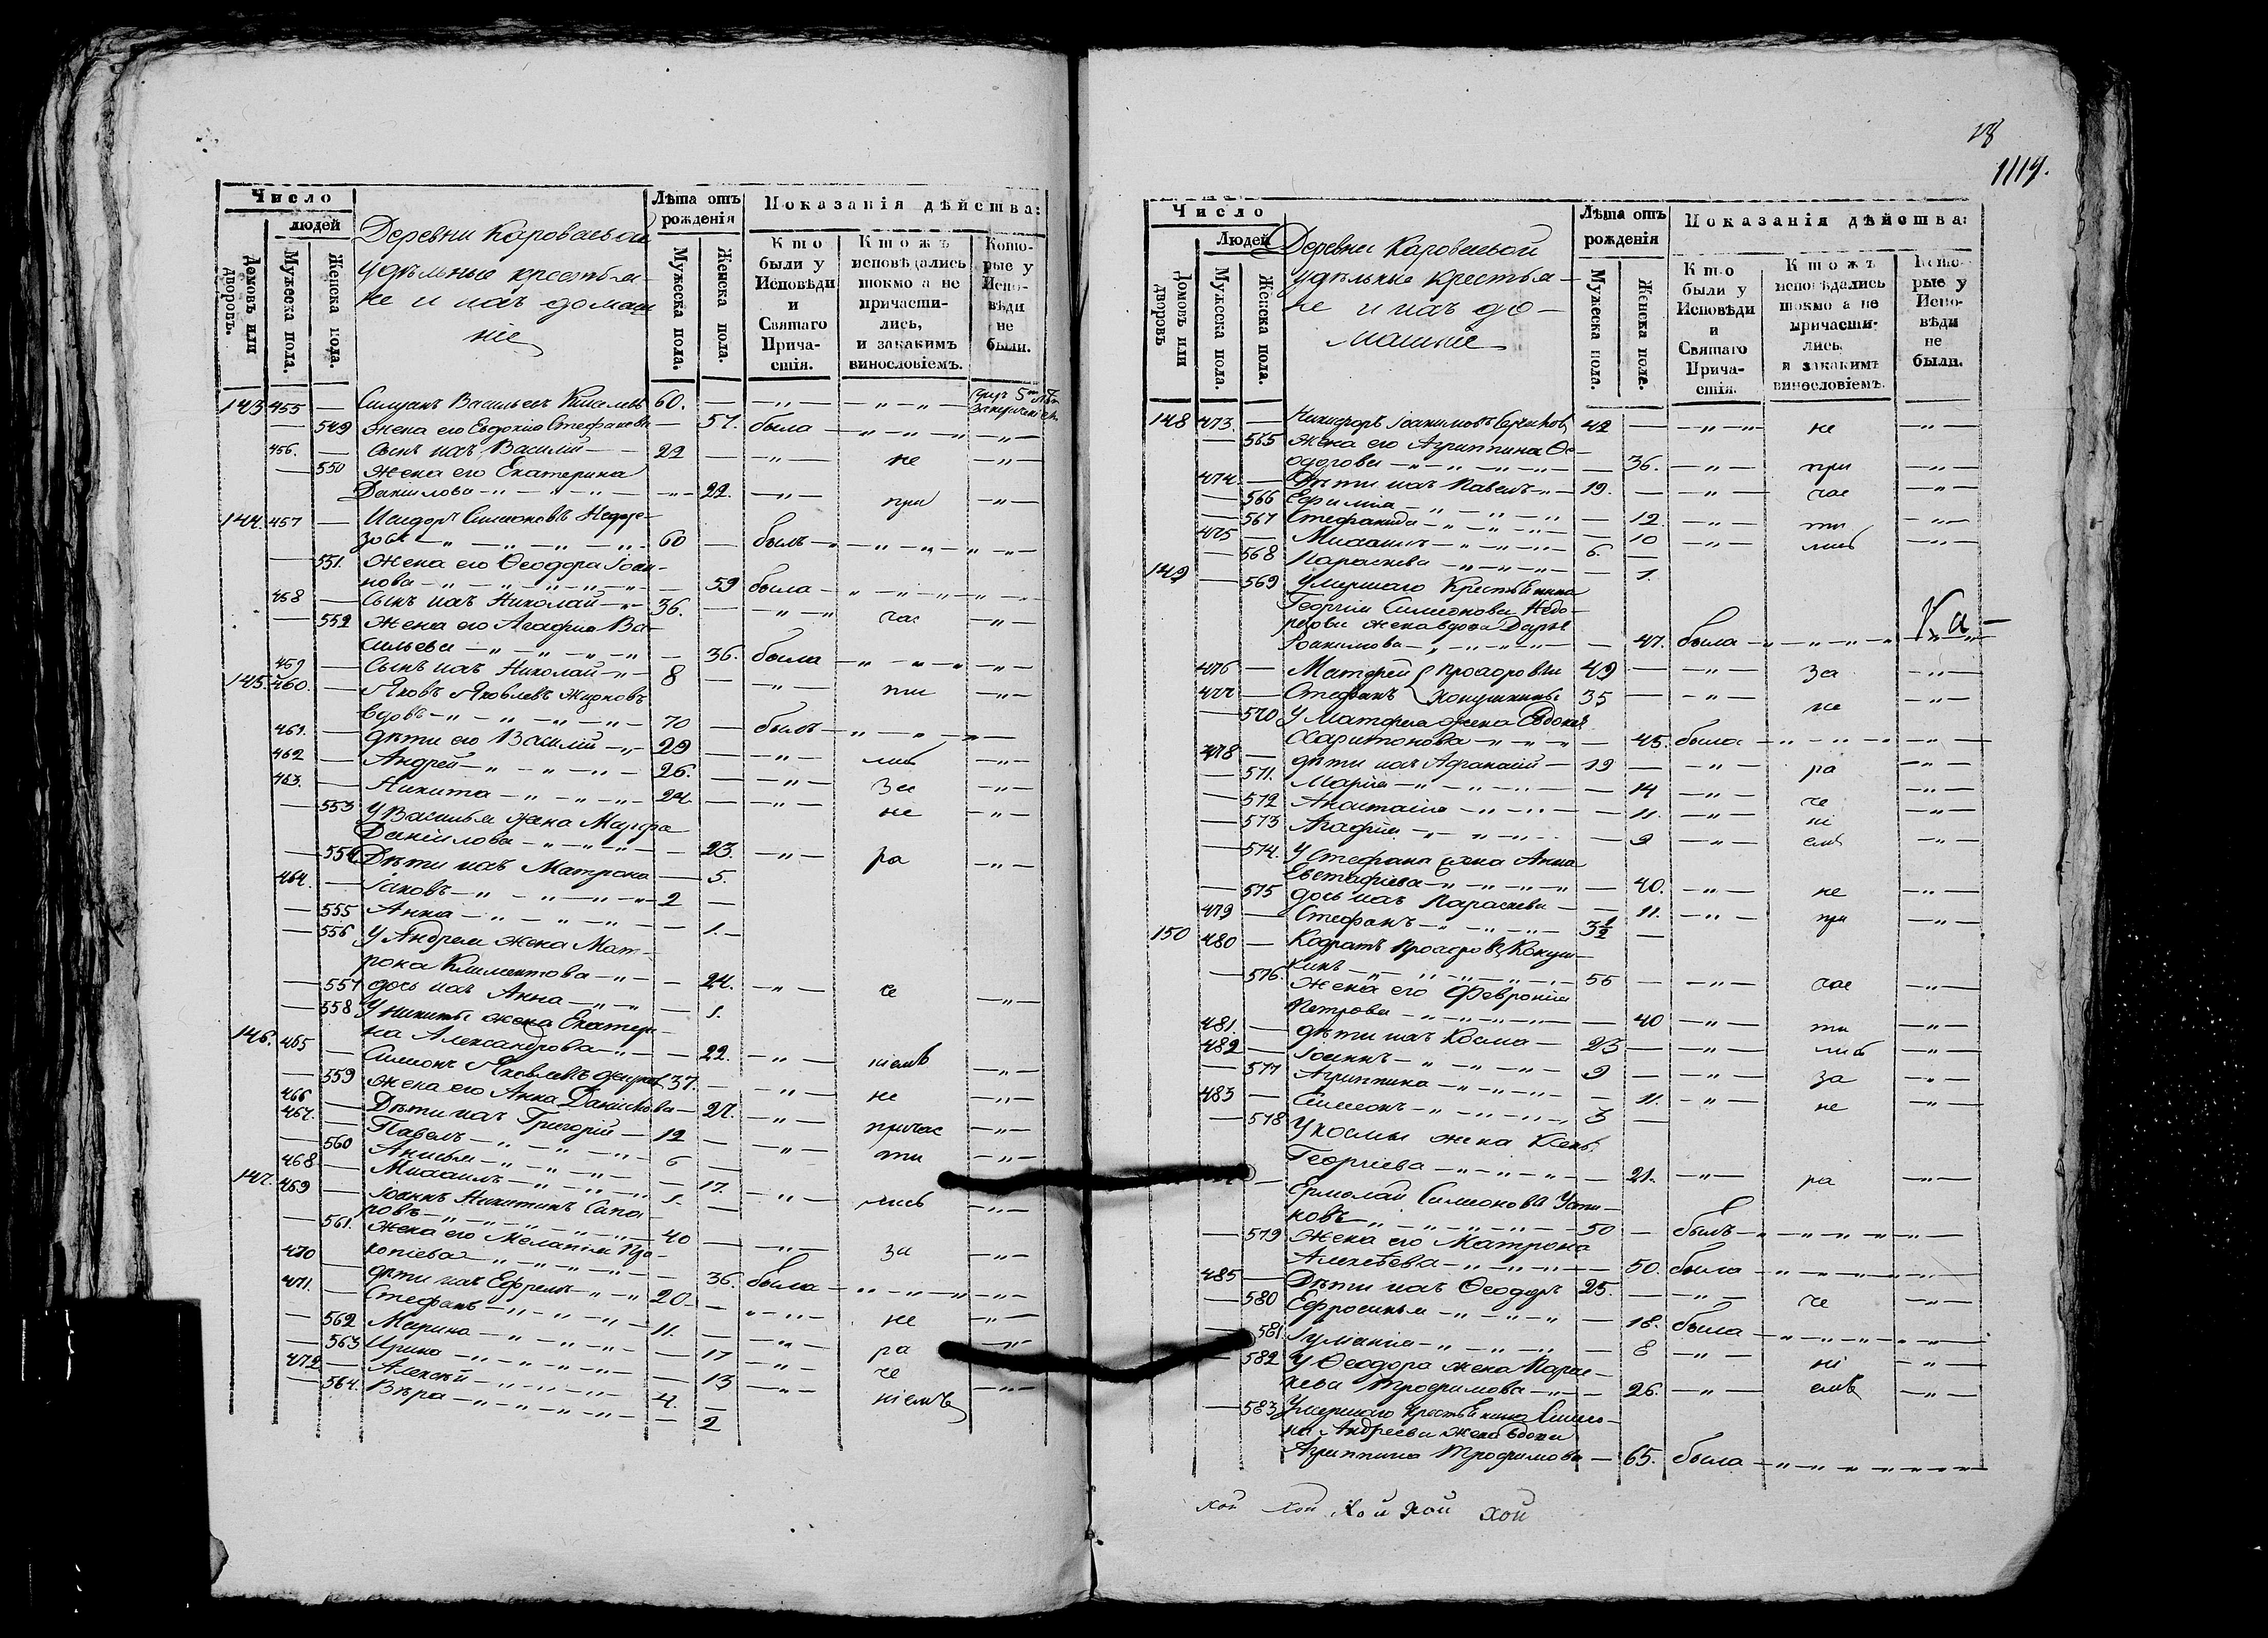 Число
людей
Домовъ или дворовъ.
Мужеска пола.
Женска пола.
Деревни Кароваевой
удѣльные крестья-
не и ихъ домаш
ніе
Лѣта отъ рожденія
Мужеска пола.
Женска пола.
Показанія дѣйства:
Кто были у Исповѣди и Святаго Причастія.
Ктожъ исповѣдались токмо а не причастились, и закакимъ винословіемъ.
Которые у Исповѣди не были.
143 455 — Силуанъ Васильевъ Киселевъ 60.
549 жена его Евдокія Стефанова — 57. была
456. — Сынъ ихъ Василій — 22 — не
550 жена его Екатерина
Даніилова — 22. при
144. 457 — Исидоръ Симеоновъ
60 — былъ
551. жена его Ѳеодора Іоан-
нова — 59 была
458 — Сынъ ихъ Николай — 36. час
552 жена его Агафія Ва-
сильева — 36. была
459 — Сынъ ихъ Николай — 8 — ти
145. 460. — Яковъ Яковлевъ Жидковъ
вдовъ — 70 — былъ
461. — дѣти его Василій — 29 — лись
462 — Андрей — 26. — за
463. — Никита — 24 — не
553 У Василья жена Марфа
Даніилова — 23. ра
554 Дѣти ихъ Матрона — 5.
464. — Іаковъ — 2 —
555 Анна — 1.
556 У Андрея жена Мат-
рона Климентова — 24. че
557 дочь ихъ Анна — 1.
558 У Никиты жена Екатери-
на Александрова — 22. ніемъ
146. 465 — Симеонъ Яковлевъ Жидковъ 37. — не
559 жена его Анна Даніилова — 27. причас
466 — Дѣти ихъ Григорій — 12 — ти
467. — Павелъ — 6 —
560 Анисья — 17. лись
468 — Михаилъ — 1. —
147. 469 — Іоаннъ Никитинъ Сапа-
ровъ — 40 — за
561. жена его Меланія Про-
копіева — 36. была
470 — дѣти ихъ Ефремъ — 20. — не
471. — Стефанъ — 11. — ра
562 Марина — 17 че
563 Ирина — 13 ніемъ
472 — Алексѣй — 4. —
564. Вѣра — 2
1119.
Число
Людей
Домовъ или дворовъ
Мужеска пола.
Женска пола.
Деревни Кароваевой
удѣльные крестья-
не и ихъ до-
машніе
Лѣта отъ рожденія
Мужеска пола.
Женска пола.
Показанія дѣйства:
Кто были у Исповѣди и Святаго Причастія.
Ктожъ исповѣдались токмо а не причастились, и закакимъ винословіемъ.
Которые у Исповѣди не были.
148 473. — Никифоръ Іоакимовъ 42 — не
565 жена его Агриппина Ѳе-
одорова — 36. при
474. — Дѣти ихъ Павелъ — 19. — час
566 Ефимія — 12. ти
567 Стефанида — 10 лись
475 — Михаилъ — 6 —
568 Параскева — 1.
149 569 Умершаго Крестьянина
Георгія Симеонова
жена вдова Дарья
Іоакимова — 47. была Ка-
476 — Матфей Прохоровы 49 — за
477 — Стефанъ Кокушкины 35 — не
570 У Матфея жена Евдокія
Харитонова — 45. была
478 — дѣти ихъ Афанасій — 19 — ра
571. Марія — 14 че
572 Анастасія — 11. ні
573 Агафія — 9 емъ
574. У Стефана жена Анна
Евстафіева — 40. не
575 дочь ихъ Параскева — 11. при
479 — Стефанъ — 3½ —
150 480 — Кодратъ Прохоровъ Кокуш-
кинъ — 55 — час
576. жена его Февронія
Петрова — 40 ти
481. — дѣти ихъ Косма — 23 — лись
482 — Іоаннъ — 9 — за
577 Агриппина — 11. не
483 — Симеонъ — 3 —
578 У Космы жена Ксенія
Георгіева — 21. ра
— Ермолай Симеоновъ Усти-
новъ — 50 — былъ
579 жена его Матрона
Алексѣева — 50. была
485 — Дѣти ихъ Ѳеодоръ 25. — че
580 Ефросинья — 18. была
581. — 8 ні
582 У Ѳеодора жена Парас-
кева Трофимова — 26. емъ
583 Умершаго крестьянина Симео-
на Андреева жена вдова
Агриппина Трофимова — 65. была
хой хой хой хой хой